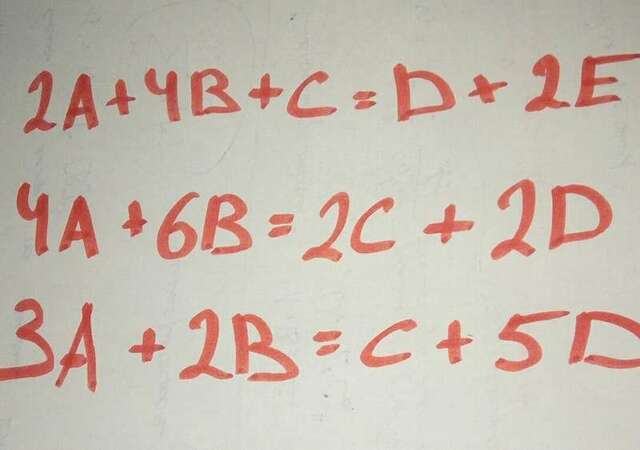 2A+4B+C=D+2E
4A+6B=2C+2D
3A+2B=C+5D